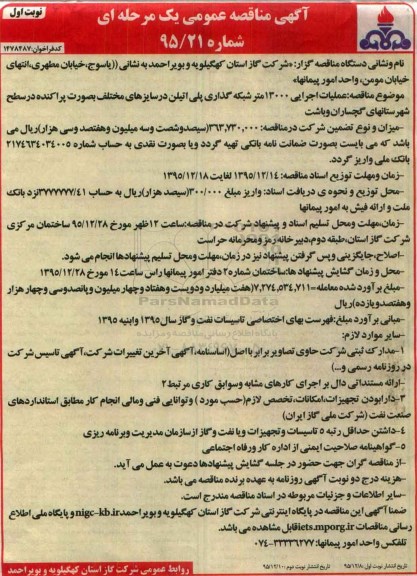 آگهی مناقصه عمومی یک مرحله ای
شماره ۹۵/۲۱
نوبت اول
کدفراخوان:۱۴۷۸۲۸۷
نام ونشانی دستگاه مناقصه گزار: «شرکت گاز استان کهگیلویه و بویراحمد به نشانی ((یاسوج، خیابان مطهری، انتهای
خیابان مومن، واحد امور پیمانها»
موضوع مناقصه:عملیات اجرایی ۱۳۰۰۰ متر شبکه گذاری پلی اتیلن در سایزهای مختلف بصورت پراکنده در سطح
شهرستانهای گچساران وباشت
-میزان و نوع تضمین شرکت در مناقصه: ۳۶۳,۷۳۰,۰۰۰(سیصدوشصت وسه میلیون وهفتصد وسی هزار)ریال می
باشد که می بایست بصورت ضمانت نامه بانکی تهیه گردد ویا بصورت نقدی به حساب شماره ۲۱۷۴۶۳۴۰۳۴۰۰۵
بانک ملی واریز گردد.
-زمان ومهلت توزیع اسناد مناقصه: ۱۳۹۵/۱۲/۱۴ لغایت ۱۳۹۵/۱۲/۱۸
-محل توزیع و نحوه ی دریافت اسناد: واریز مبلغ ۳۰۰/۰۰۰(سیصد هزار)ریال به حساب ۳۷۷۷۷۷۷/۴۱نزد بانک
ملت و ارائه فیش به امور پیمانها
-زمان،مهلت ومحل تسلیم اسناد و پیشنهاد شرکت در مناقصه:ساعت ۱۲ظهر مورخ ۹۵/۱۲/۲۸ ساختمان مرکزی
شرکت گاز استان،طبقه دوم،دبیرخانه رمزومحرمانه حراست
-اصلاح،جایگزینی وپس گرفتن پیشنهاد نیز در زمان،مهلت ومحل تسلیم پیشنهادها انجام می شود.
-محل و زمان گشایش پیشنهاد ها:ساختمان شماره ۲ دفتر امور پیمانها راس ساعت ۱۴ مورخ ۱۳۹۵/۱۲/۲۸
-مبلغ برآورد شده معامله:۷,۲۷۴,۵۳۴,۷۱۱(هفت میلیارد ودویست وهفتاد وچهار میلیون وپانصدوسی وچهار هزار
وهفتصدویازده)ریال
-مبانی برآورد مبلغ:فهرست بهای اختصاصی تاسیسات نفت وگاز سال ۱۳۹۵ وابنیه ۱۳۹۵
-سایر موارد لازم:
۱-مدارک ثبتی شرکت حاوی تصاویر برابر بااصل(اساسنامه،آگهی آخرین تغییرات شرکت،آگهی تاسیس شرکت
در روزنامه رسمی و...)
-ارائه مستنداتی دال بر اجرای کارهای مشابه وسوابق کاری مرتبط ۲
۳-دارابودن تجهیزات،امکانات،تخصص لازم(حسب مورد ) وتوانایی فنی ومالی انجام کار مطابق استانداردهای
صنعت نفت (شرکت ملی گاز ایران)
۴-داشتن حداقل رتبه ۵ تاسیسات وتجهیزات ویا نفت وگاز از سازمان مدیریت وبرنامه ریزی
۵-گواهینامه صلاحیت ایمنی از اداره کار ورفاه اجتماعی
-از مناقصه گران جهت حضور در جلسه گشایش پیشنهادها دعوت به عمل می آید.
-هزینه درج دو نوبت آگهی روزنامه به عهده برنده مناقصه می باشد.
-سایر اطلاعات و جزئیات مربوطه در اسناد مناقصه مندرج است.
ضمنا آگهی این مناقصه در پایگاه اینترنتی شرکت گاز استان کهگیلویه و بویراحمدnigc-kb.ir و پایگاه ملی اطلاع
رسانی مناقصات iets.mporg.irقابل مشاهده می باشد.
تلفکس واحد امور پیمانها: ۳۳۳۳۶۲۷۷-۰۷۴
تاریخ انتشار نوبت اول: ۹۵/۱۲/۸
تاریخ انتشار نوبت دوم: ۹۵/۱۲/۱۰
روابط عمومی شرکت گاز استان کهگیلویه و بویر احمد
ParsNamadData